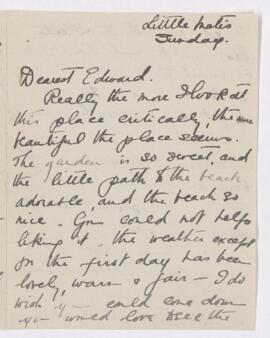 Little Metis
Sunday.
Dearest Edward.
Really the more I look at
this place critically, the more
beautiful the place seems.
The garden is so sweet, and
the little path to the beach
adorable, and the beach so
nice. You could not help
liking it - the weather except
for the first day has been
lovely, warm & fair - I do
wish you could come down
you would love to see the